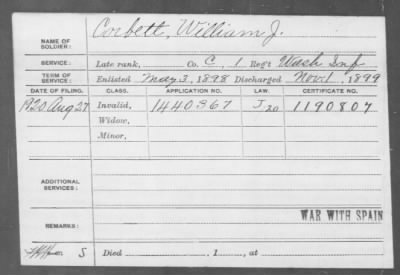 NAME OF SOLDIER: Corbett, William J.
SERVICE: Late rank, Co. C, 1 Reg't Wash Inf
TERM OF SERVICE: Enlisted May 3, 1898 Discharged Nov 1, 1899
DATE OF FILING. CLASS. APPLICATION NO. LAW. CERTIFICATE NO.
1920 Aug 27 Invalid, 1440367 J 20 1190807
Widow,
Minor,
ADDITIONAL SERVICES:
WAR WITH SPAIN
REMARKS:
S Died , 1 , at